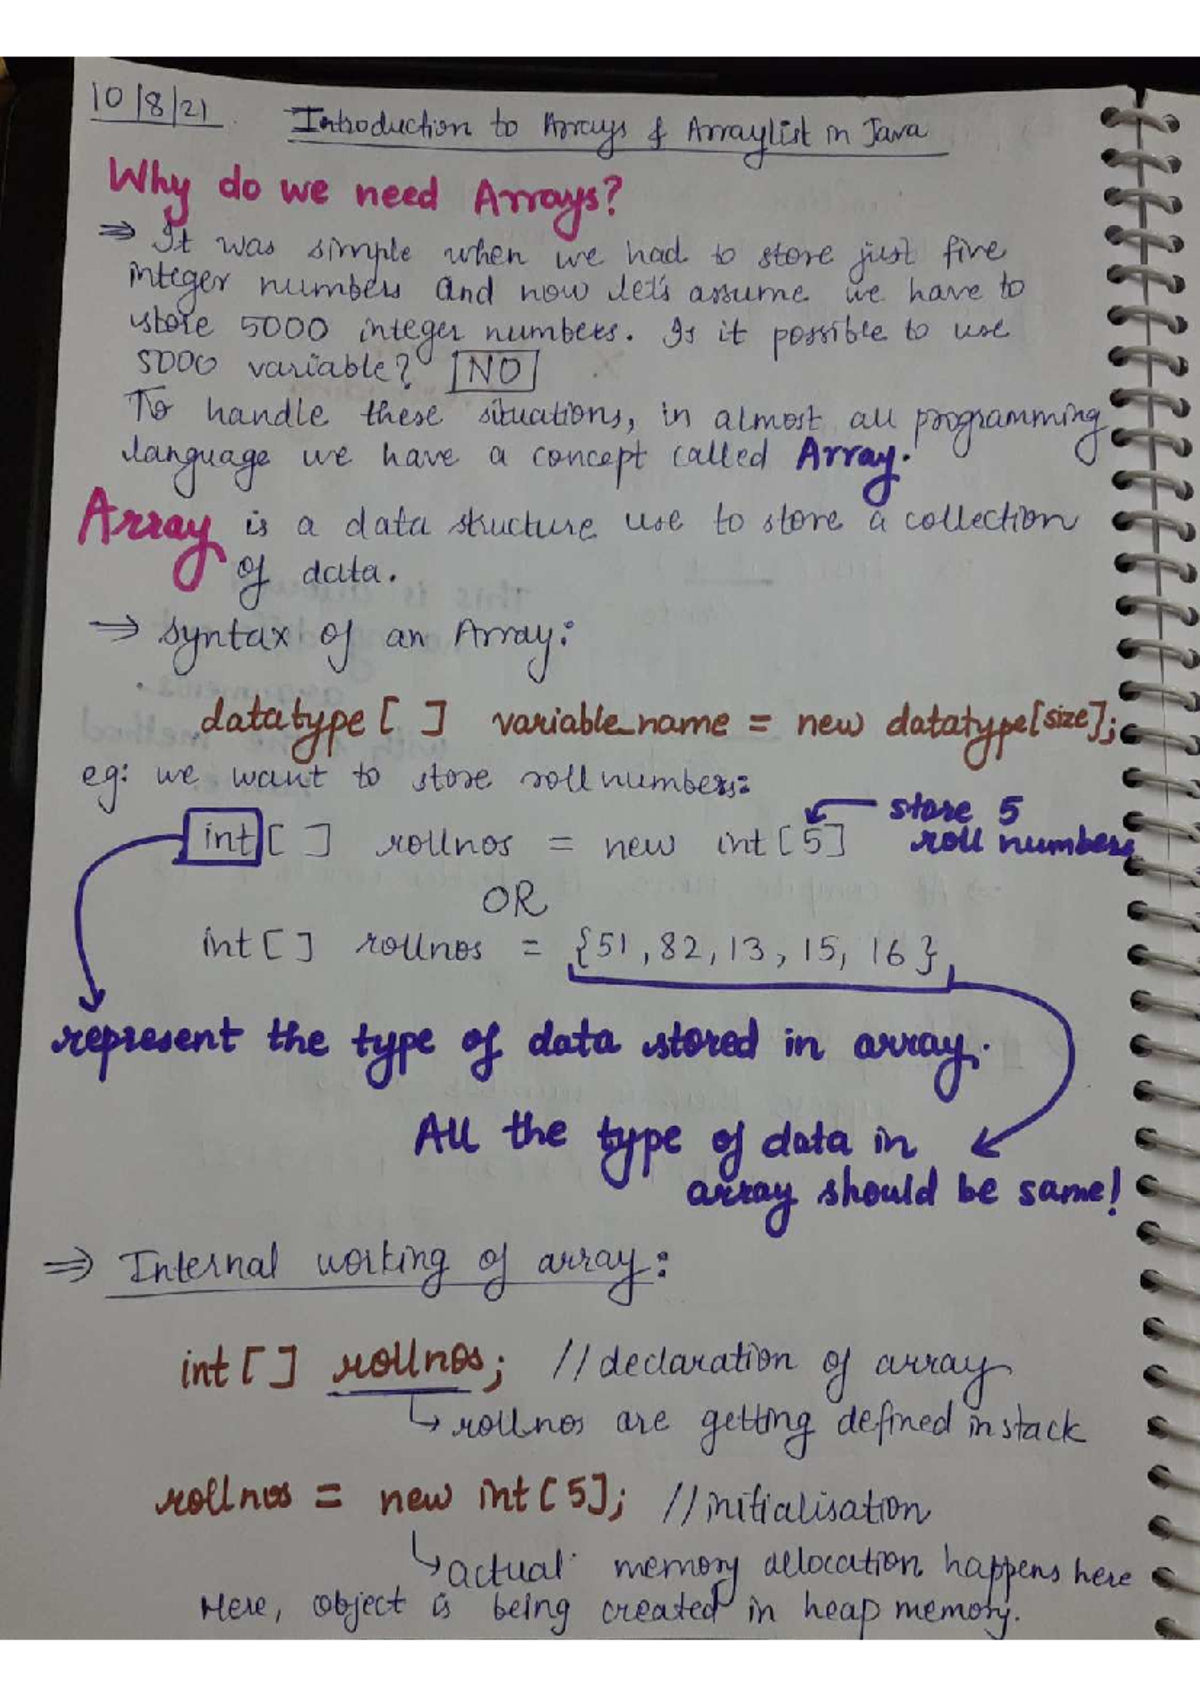 10/8/21
Introduction to Arrays & Arraylist in Java
Why do we need Arrays?
⇒ It was simple when we had to store just five
integer numbers and now let's assume we have to
store 5000 integer numbers. Is it possible to use
5000 variable? NO
To handle these situations, in almost all programming
language we have a concept called Array.
Array is a data structure use to store a collection
of data.
⇒ Syntax of an Array:
datatype [ ] variable_name = new datatype[size];
eg: we want to store roll numbers:
store 5
int [ ] rollnos = new int [5] roll numbers
OR
int [ ] rollnos = {51, 82, 13, 15, 16}
represent the type of data stored in array.
All the type of data in
array should be same!
⇒ Internal working of array:
int [ ] rollnos; // declaration of array
↳ rollnos are getting defined in stack
rollnos = new int [5]; // initialisation
↳ actual memory allocation happens here
Here, object is being created in heap memory.